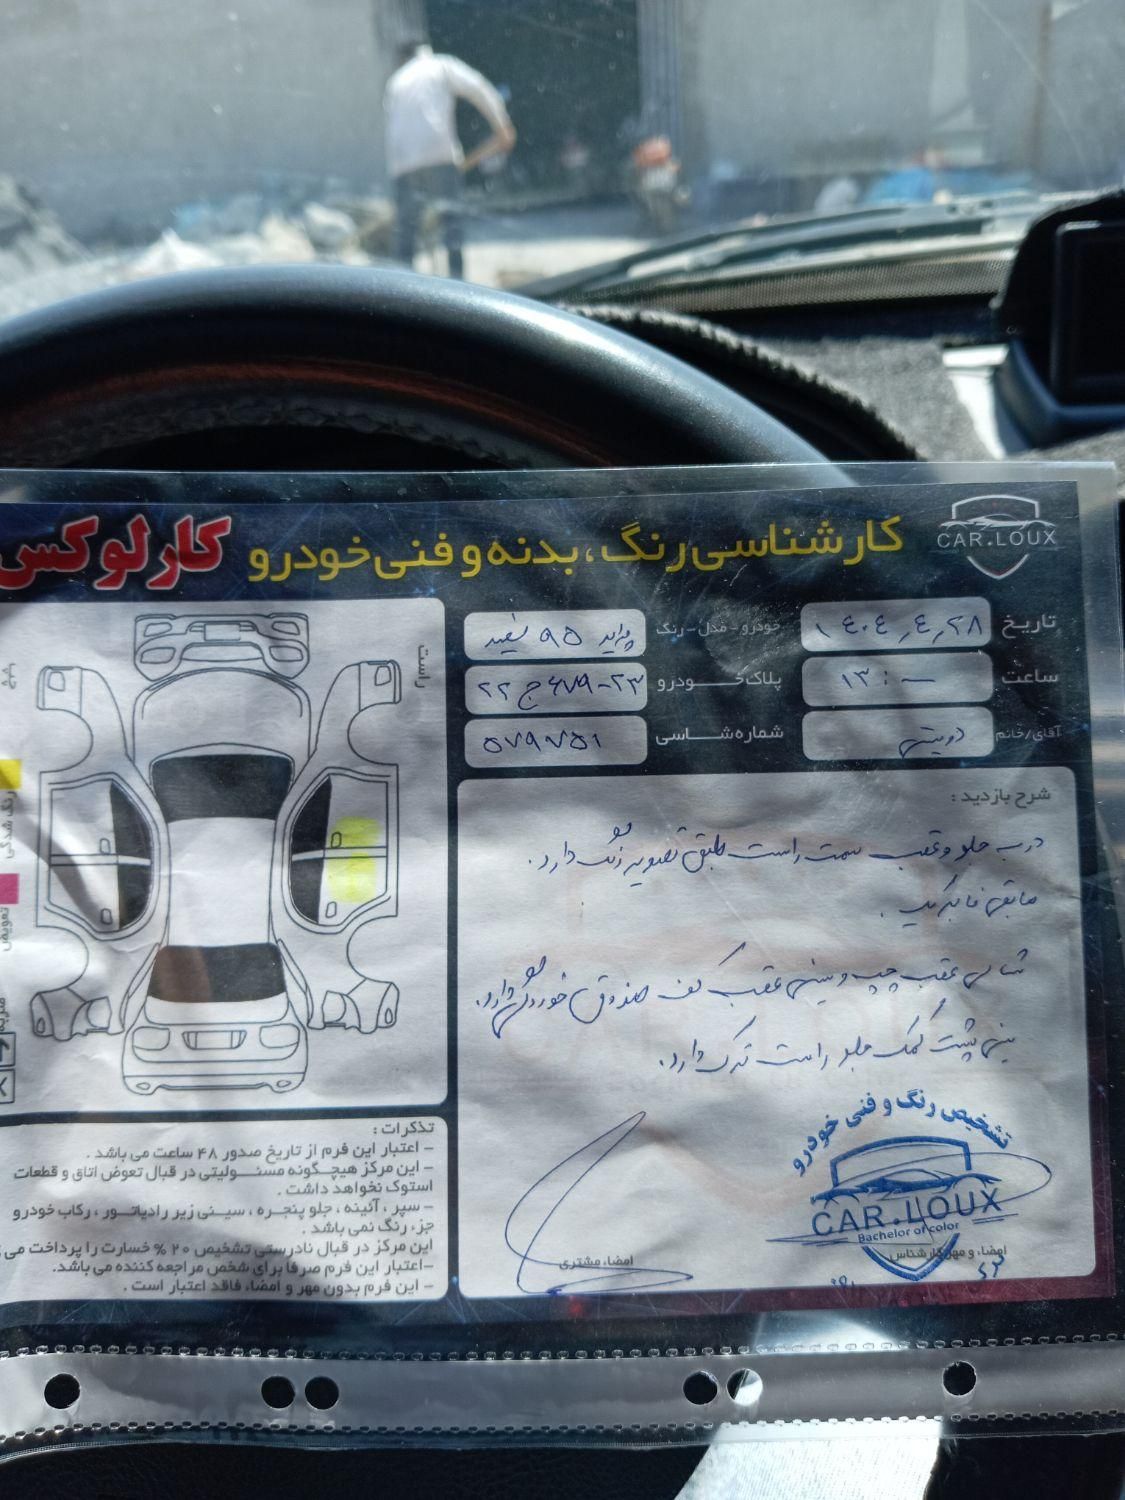 CAR.LOUX
کارشناسی رنگ، بدنه و فنی خودرو کارلوکس
تاریخ ۱۴۰۴٫۴٫۲۸
ساعت ۱۳:۰۰
آقای/خانم
خودرو-مدل-رنگ پراید ۹۵ سفید
پلاک خودرو ۲۲ ج ۶۷۹-۲۳
شماره شاسی ۵۷۹۷۵۱
شرح بازدید :
درب جلو و عقب سمت راست طبق تصویر رنگ دارد.
مابقی فابریک.
شاسی عقب چپ و سینی عقب کف صندوق خوردگی دارد.
سینی پشت کمک جلو راست ترک دارد.
تشخیص رنگ و فنی خودرو
CAR.LOUX
Bachelor of color
امضاء و مهر کارشناس
امضاء مشتری
راست
چپ
رنگ شدگی
تعویض
تذکرات :
– اعتبار این فرم از تاریخ صدور ۴۸ ساعت می باشد .
– این مرکز هیچگونه مسئولیتی در قبال تعوض اتاق و قطعات
استوک نخواهد داشت .
– سپر ، آئینه ، جلو پنجره ، سینی زیر رادیاتور ، رکاب خودرو
جزء رنگ نمی باشد .
این مرکز در قبال نادرستی تشخیص ۲۰ % خسارت را پرداخت می
–اعتبار این فرم صرفا برای شخص مراجعه کننده می باشد.
– این فرم بدون مهر و امضاء فاقد اعتبار است .